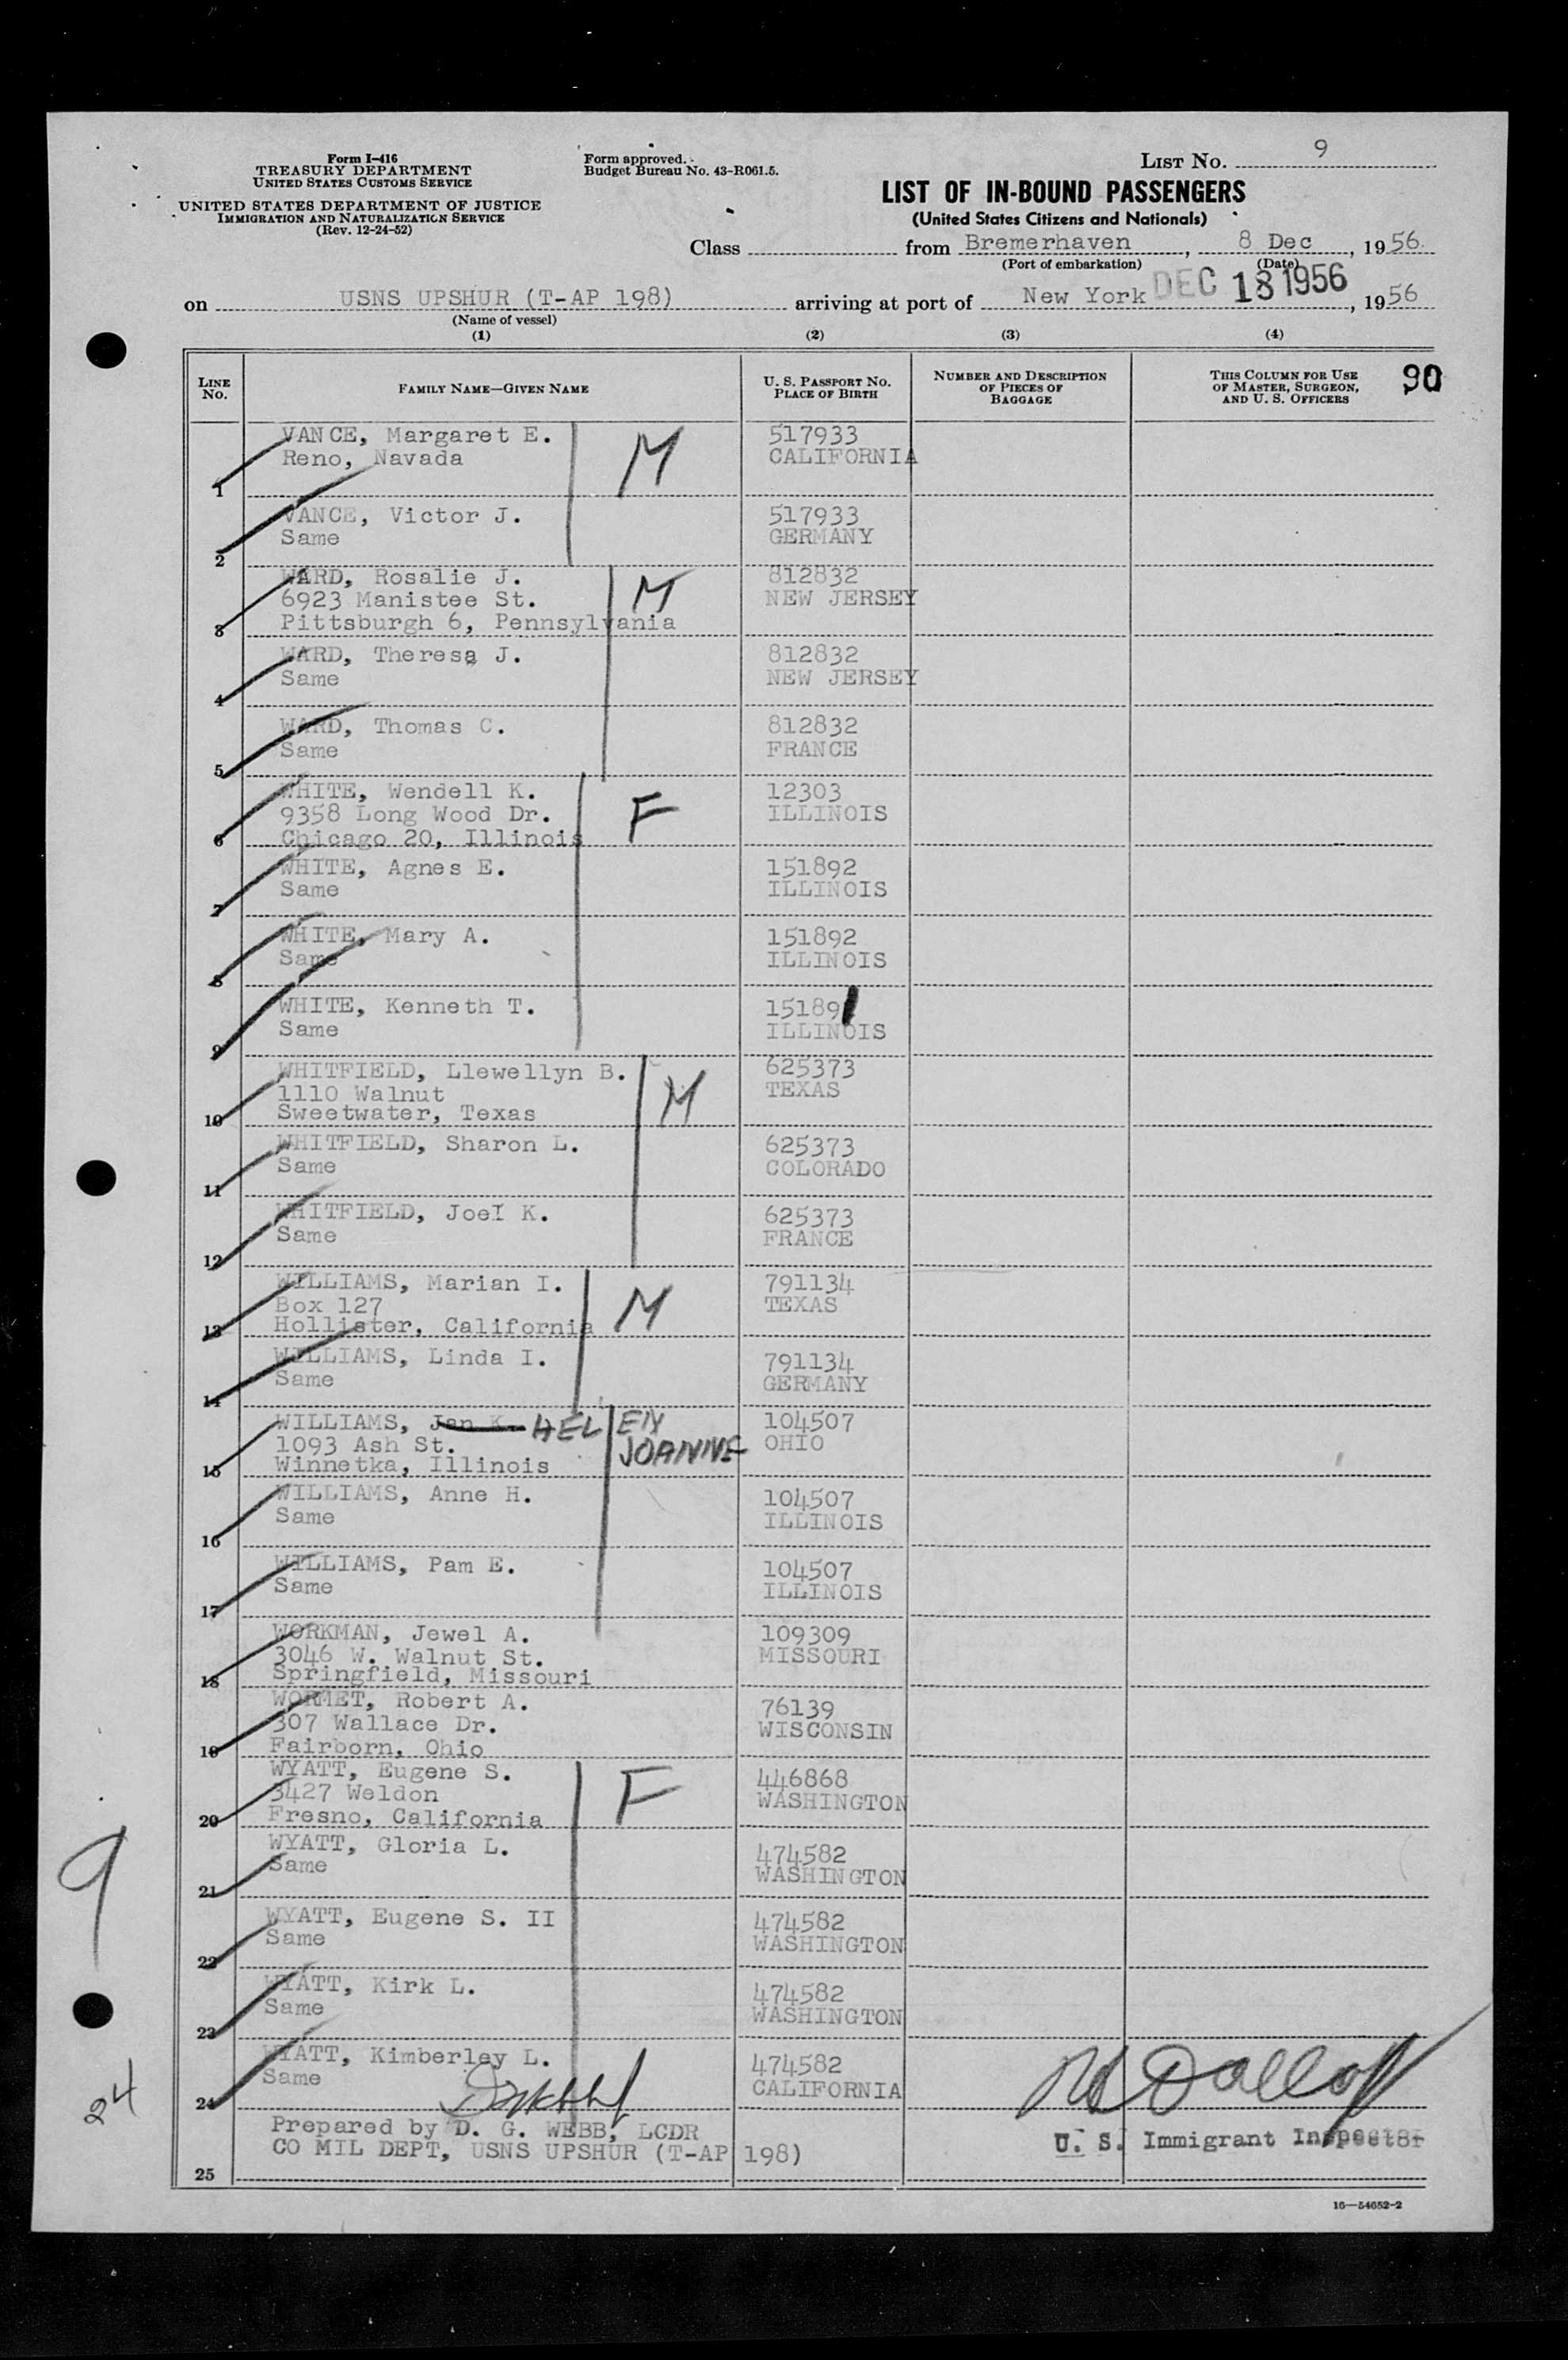 Form I-416
TREASURY DEPARTMENT
UNITED STATES CUSTOMS SERVICE
UNITED STATES DEPARTMENT OF JUSTICE
IMMIGRATION AND NATURALIZATION SERVICE
(Rev. 12-24-52)
Form approved.
Budget Bureau No. 43-R061.5.
LIST No. 9
LIST OF IN-BOUND PASSENGERS
(United States Citizens and Nationals)
Class from Bremerhaven, 8 Dec, 1956
(Port of embarkation) (Date)
on USNS UPSHUR (T-AP 198) arriving at port of New York DEC 18 1956, 1956
(Name of vessel)
(1) (2) (3) (4)
LINE No.
FAMILY NAME—GIVEN NAME
U. S. PASSPORT No.
PLACE OF BIRTH
NUMBER AND DESCRIPTION
OF PIECES OF
BAGGAGE
THIS COLUMN FOR USE
OF MASTER, SURGEON,
AND U. S. OFFICERS
90
VANCE, Margaret E. M 517933
Reno, Navada CALIFORNIA
1
VANCE, Victor J. 517933
Same GERMANY
2
WARD, Rosalie J. M 812832
6923 Manistee St. NEW JERSEY
3 Pittsburgh 6, Pennsylvania
WARD, Theresa J. 812832
Same NEW JERSEY
4
WARD, Thomas C. 812832
Same FRANCE
5
WHITE, Wendell K. F 12303
9358 Long Wood Dr. ILLINOIS
6 Chicago 20, Illinois
WHITE, Agnes E. 151892
Same ILLINOIS
7
WHITE, Mary A. 151892
Same ILLINOIS
8
WHITE, Kenneth T. 15189
Same ILLINOIS
9
WHITFIELD, Llewellyn B. M 625373
1110 Walnut TEXAS
10 Sweetwater, Texas
WHITFIELD, Sharon L. 625373
Same COLORADO
11
WHITFIELD, Joel K. 625373
Same FRANCE
12
WILLIAMS, Marian I. M 791134
Box 127 TEXAS
13 Hollister, California
WILLIAMS, Linda I. 791134
Same GERMANY
14
WILLIAMS, Jan K. HELEN 104507
1093 Ash St. JOANNE OHIO
15 Winnetka, Illinois
WILLIAMS, Anne H. 104507
Same ILLINOIS
16
WILLIAMS, Pam E. 104507
Same ILLINOIS
17
WORKMAN, Jewel A. 109309
3046 W. Walnut St. MISSOURI
18 Springfield, Missouri
WORMET, Robert A. 76139
307 Wallace Dr. WISCONSIN
19 Fairborn, Ohio
WYATT, Eugene S. F 446868
3427 Weldon WASHINGTON
20 Fresno, California
WYATT, Gloria L. 474582
Same WASHINGTON
21
WYATT, Eugene S. II 474582
Same WASHINGTON
22
WYATT, Kirk L. 474582
Same WASHINGTON
23
WYATT, Kimberley L. 474582
Same CALIFORNIA
24
Prepared by D. G. WEBB, LCDR
CO MIL DEPT, USNS UPSHUR (T-AP 198)
25
U. S. Immigrant Inspector
16—54652-2
9
24